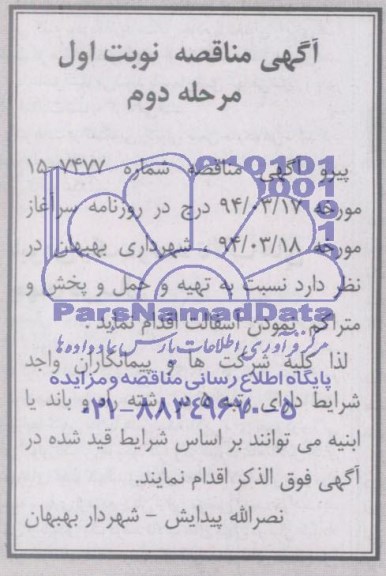 آگهی مناقصه نوبت اول
مرحله دوم
پیرو آگهی مناقصه شماره ۷۴۷۷-۱۵
مورخه ۹۴/۰۳/۱۷ درج در روزنامه سرآغاز
مورخه ۹۴/۰۳/۱۸ ، شهرداری بهبهان در
نظر دارد نسبت به تهیه و حمل و پخش و
ParsNamadData
متراکم نمودن آسفالت اقدام نماید .
مرکز فرآوری اطلاعات پارس نماد داده ها
لذا کلیه شرکت ها و پیمانکاران واجد
پایگاه اطلاع رسانی مناقصه و مزایده
شرایط دارای رتبه ۵ در رشته راه و باند یا
۰۲۱-۸۸۳۴۹۶۷۰-۵
ابنیه می توانند بر اساس شرایط قید شده در
آگهی فوق الذکر اقدام نمایند.
نصرالله پیدایش - شهردار بهبهان